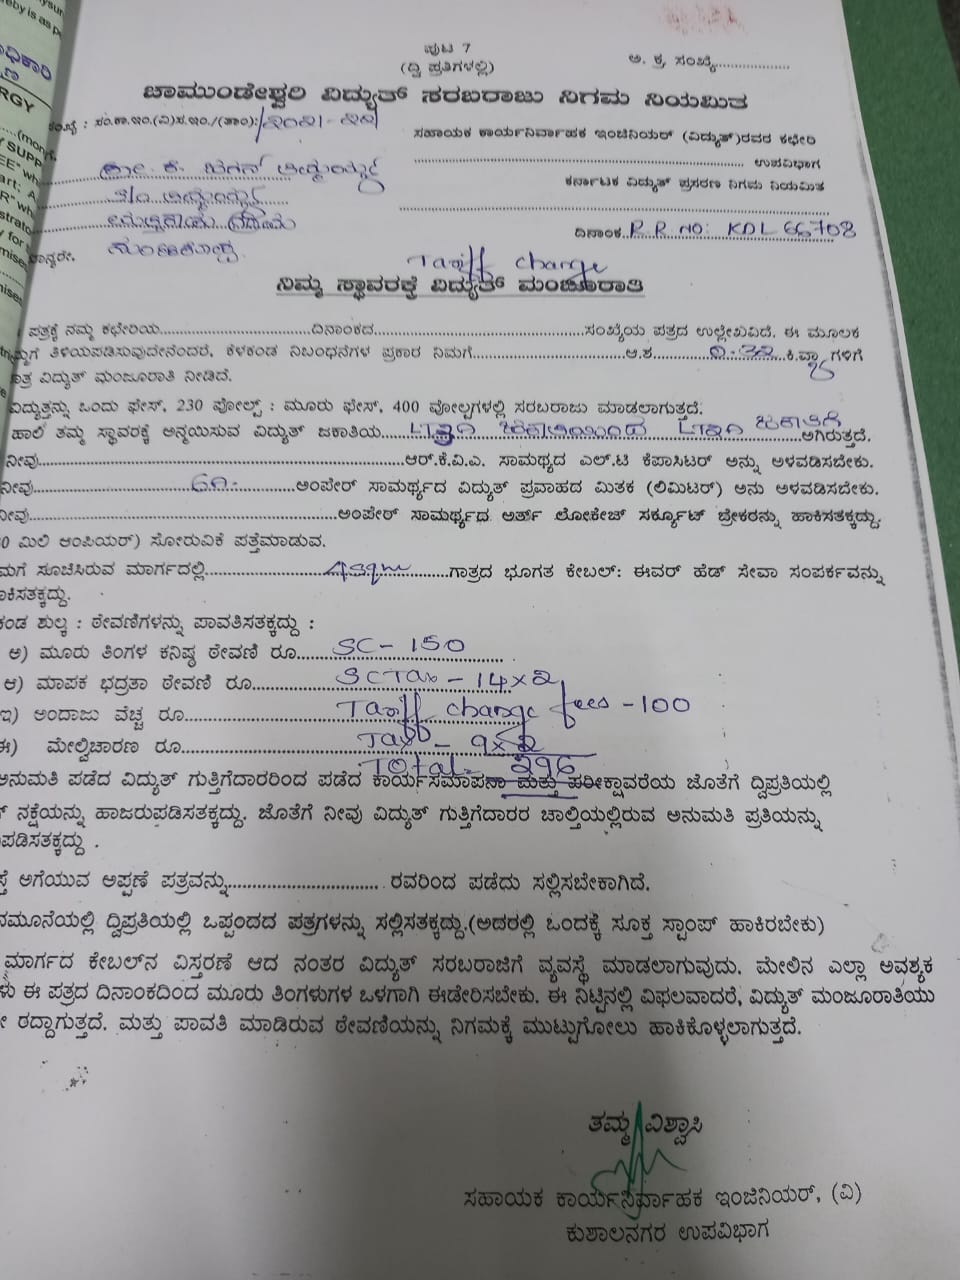 ysur
eby is as p
ಧಿಕಾರಿ
RGY
(mon
SUPP
EE" wh
art: A
R" wh
strato
for
mises
ises
ಪುಟ 7
(ದ್ವಿ ಪ್ರತಿಗಳಲ್ಲಿ)
ಅ. ಕ್ರ. ಸಂಖ್ಯೆ..................
ಚಾಮುಂಡೇಶ್ವರಿ ವಿದ್ಯುತ್ ಸರಬರಾಜು ನಿಗಮ ನಿಯಮಿತ
ಸಂಖ್ಯೆ : ಸಂ.ಕಾ.ಇಂ.(ವಿ)ಸ.ಇಂ./(ತಾಂ):/2021-22
ಸಹಾಯಕ ಕಾರ್ಯನಿರ್ವಾಹಕ ಇಂಜಿನಿಯರ್ (ವಿದ್ಯುತ್)ರವರ ಕಛೇರಿ
.................... ಉಪವಿಭಾಗ
ಕರ್ನಾಟಕ ವಿದ್ಯುತ್ ಪ್ರಸರಣ ನಿಗಮ ನಿಯಮಿತ
S/o
ದಿನಾಂಕ..R.R NO: KDL 66708
ಮಾನ್ಯರೇ,
Tariff change
ನಿಮ್ಮ ಸ್ಥಾವರಕ್ಕೆ ವಿದ್ಯುತ್ ಮಂಜೂರಾತಿ
ಪತ್ರಕ್ಕೆ ನಮ್ಮ ಕಛೇರಿಯ....................ದಿನಾಂಕದ....................ಸಂಖ್ಯೆಯ ಪತ್ರದ ಉಲ್ಲೇಖವಿದೆ. ಈ ಮೂಲಕ
ಮಗೆ ತಿಳಿಯಪಡಿಸುವುದೇನೆಂದರೆ, ಕೆಳಕಂಡ ನಿಬಂಧನೆಗಳ ಪ್ರಕಾರ ನಿಮಗೆ....................ಅ.ಶ..........ಕಿ.ವ್ಯಾ ಗಳಿಗೆ
ವಿದ್ಯುತ್ ಮಂಜೂರಾತಿ ನೀಡಿದೆ.
ವಿದ್ಯುತ್ತನ್ನು ಒಂದು ಫೇಸ್, 230 ವೋಲ್ಟ್ : ಮೂರು ಫೇಸ್, 400 ವೋಲ್ಟಗಳಲ್ಲಿ ಸರಬರಾಜು ಮಾಡಲಾಗುತ್ತದೆ.
ಹಾಲಿ ತಮ್ಮ ಸ್ಥಾವರಕ್ಕೆ ಅನ್ವಯಿಸುವ ವಿದ್ಯುತ್ ಜಕಾತಿಯ.... ಜಕಾತಿಯಿಂದ ಜಕಾತಿಗೆ ....ಆಗಿರುತ್ತದೆ.
ನೀವು....................ಆರ್.ಕೆ.ವಿ.ಎ. ಸಾಮಥ್ಯದ ಎಲ್.ಟಿ ಕೆಪಾಸಿಟರ್ ಅನ್ನು ಅಳವಡಿಸಬೇಕು.
ನೀವು....................ಅಂಪೇರ್ ಸಾಮರ್ಥ್ಯದ ವಿದ್ಯುತ್ ಪ್ರವಾಹದ ಮಿತಕ (ಲಿಮಿಟರ್) ಅನು ಅಳವಡಿಸಬೇಕು.
ನೀವು....................ಅಂಪೇರ್ ಸಾಮರ್ಥ್ಯದ ಅರ್ತ್ ಲೋಕೇಜ್ ಸರ್ಕ್ಯೂಟ್ ಬ್ರೇಕರನ್ನು ಹಾಕಿಸತಕ್ಕದ್ದು.
0 ಮಿಲಿ ಆಂಪಿಯರ್) ಸೋರುವಿಕೆ ಪತ್ತೆಮಾಡುವ.
ಮಗೆ ಸೂಚಿಸಿರುವ ಮಾರ್ಗದಲ್ಲಿ..........4sqm......ಗಾತ್ರದ ಭೂಗತ ಕೇಬಲ್: ಈವರ್ ಹೆಡ್ ಸೇವಾ ಸಂಪರ್ಕವನ್ನು
ಾಕಿಸತಕ್ಕದ್ದು.
ಕಂಡ ಶುಲ್ಕ : ಠೇವಣಿಗಳನ್ನು ಪಾವತಿಸತಕ್ಕದ್ದು :
ಅ) ಮೂರು ತಿಂಗಳ ಕನಿಷ್ಠ ಠೇವಣಿ ರೂ....SC - 150
ಆ) ಮಾಪಕ ಭದ್ರತಾ ಠೇವಣಿ ರೂ..........SC Tax - 14x2
ಇ) ಅಂದಾಜು ವೆಚ್ಚ ರೂ....................Tariff change fees - 100
ಈ) ಮೇಲ್ವಿಚಾರಣ ರೂ....................Tax - 9x2
Total = 296
ಅನುಮತಿ ಪಡೆದ ವಿದ್ಯುತ್ ಗುತ್ತಿಗೆದಾರರಿಂದ ಪಡೆದ ಕಾರ್ಯಸಮಾಪನಾ ಮತ್ತು ಪರೀಕ್ಷಾವರೆಯ ಜೊತೆಗೆ ದ್ವಿಪ್ರತಿಯಲ್ಲಿ
ನಕ್ಷೆಯನ್ನು ಹಾಜರುಪಡಿಸತಕ್ಕದ್ದು. ಜೊತೆಗೆ ನೀವು ವಿದ್ಯುತ್ ಗುತ್ತಿಗೆದಾರರ ಚಾಲ್ತಿಯಲ್ಲಿರುವ ಅನುಮತಿ ಪ್ರತಿಯನ್ನು
ಪಡಿಸತಕ್ಕದ್ದು .
ಸ್ತೆ ಅಗೆಯುವ ಅಪ್ಪಣೆ ಪತ್ರವನ್ನು.................... ರವರಿಂದ ಪಡೆದು ಸಲ್ಲಿಸಬೇಕಾಗಿದೆ.
ನಮೂನೆಯಲ್ಲಿ ದ್ವಿಪ್ರತಿಯಲ್ಲಿ ಒಪ್ಪಂದದ ಪತ್ರಗಳನ್ನು ಸಲ್ಲಿಸತಕ್ಕದ್ದು.(ಅದರಲ್ಲಿ ಒಂದಕ್ಕೆ ಸೂಕ್ತ ಸ್ಟಾಂಪ್ ಹಾಕಿರಬೇಕು)
ಮಾರ್ಗದ ಕೇಬಲ್‌ನ ವಿಸ್ತರಣೆ ಆದ ನಂತರ ವಿದ್ಯುತ್ ಸರಬರಾಜಿಗೆ ವ್ಯವಸ್ಥೆ ಮಾಡಲಾಗುವುದು. ಮೇಲಿನ ಎಲ್ಲಾ ಅವಶ್ಯಕ
ಳು ಈ ಪತ್ರದ ದಿನಾಂಕದಿಂದ ಮೂರು ತಿಂಗಳುಗಳ ಒಳಗಾಗಿ ಈಡೇರಿಸಬೇಕು. ಈ ನಿಟ್ಟಿನಲ್ಲಿ ವಿಫಲವಾದರೆ, ವಿದ್ಯುತ್ ಮಂಜೂರಾತಿಯು
ರದ್ದಾಗುತ್ತದೆ. ಮತ್ತು ಪಾವತಿ ಮಾಡಿರುವ ಠೇವಣಿಯನ್ನು ನಿಗಮಕ್ಕೆ ಮುಟ್ಟುಗೋಲು ಹಾಕಿಕೊಳ್ಳಲಾಗುತ್ತದೆ.
ತಮ್ಮ ವಿಶ್ವಾಸಿ
ಸಹಾಯಕ ಕಾರ್ಯನಿರ್ವಾಹಕ ಇಂಜಿನಿಯರ್, (ವಿ)
ಕುಶಾಲನಗರ ಉಪವಿಭಾಗ